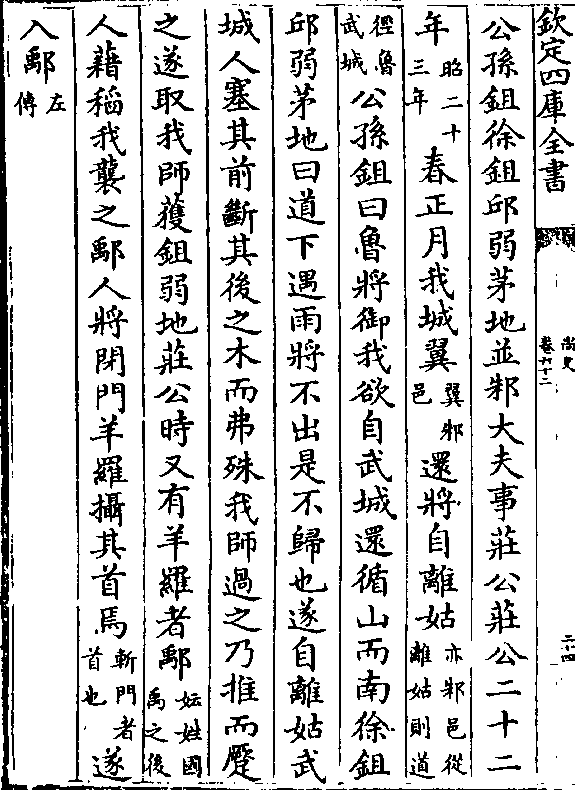 欽定四庫全書
尚史
卷六十二
二十四
公孫鉏徐鉏邱弱茅地並邾大夫事莊公莊公二十二
年昭二十三年春正月我城翼翼邾邑還將自離姑亦邾邑從離姑則道
徑魯武城公孫鉏曰魯將御我欲自武城還循山而南徐鉏
邱弱茅地曰道下遇雨將不出是不歸也遂自離姑武
城人塞其前斷其後之木而弗殊我師過之乃推而蹷
之遂取我師獲鉏弱地莊公時又有羊羅者鄅妘姓國禹之後
人藉稻我襲之鄅人將閉門羊羅攝其首焉斬門者首也遂
入鄅左傳